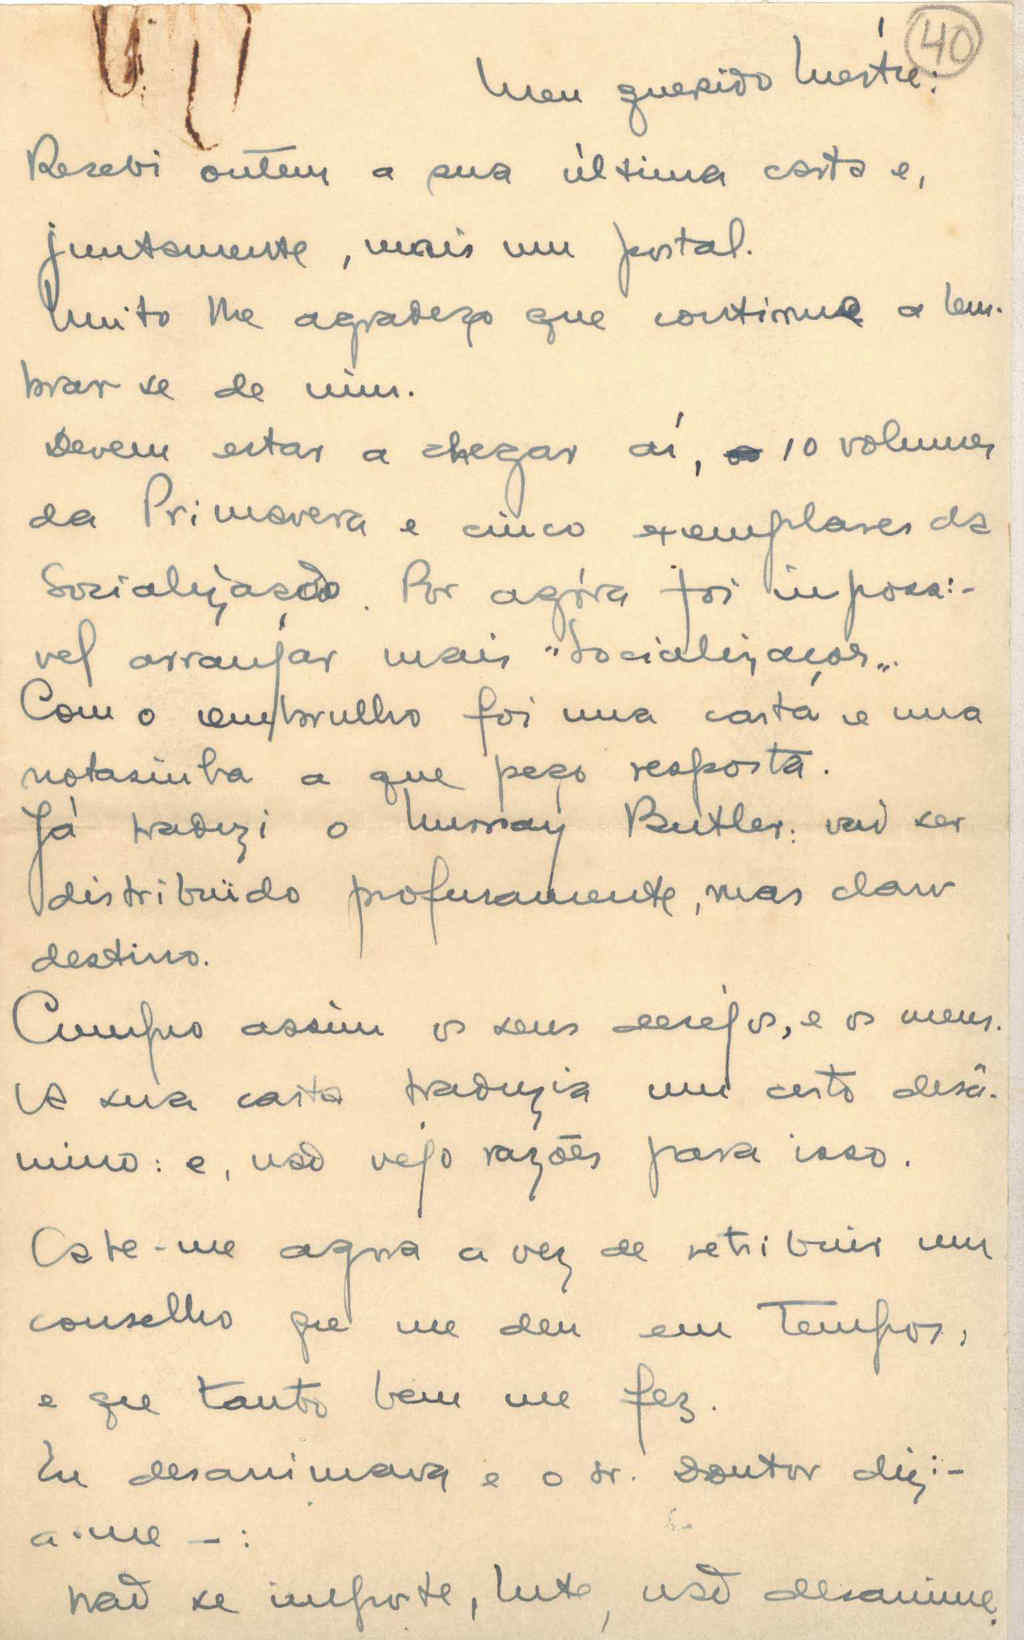 40
Meu querido Mestre:
Recebi ontem a sua última carta e,
juntamente, mais um postal.
Muito lhe agradeço que continue a lem-
brar se de mim.
Devem estar a chegar aí, 10 volumes
da Primavera e cinco exemplares da
Socialização. Por agóra foi impossi-
vel arranjar mais "Socializaçoes".
Com o embrulho foi uma carta e uma
notasinha a que peço resposta.
Já traduzi o Murray Butler: vai ser
distribuido profusamente, mas claro
destino.
Cumpro assim os seus desejos, e os meus.
A sua carta traduzia um certo desâ-
nimo: e, não vejo razões para isso.
Cabe-me agora a vez de retribuir um
conselho que me deu em tempos,
e que tanto bem me fez.
Eu desanimava e o sr. Doutor dizi-
a-me -:
Não se importe, lute, não desanime.